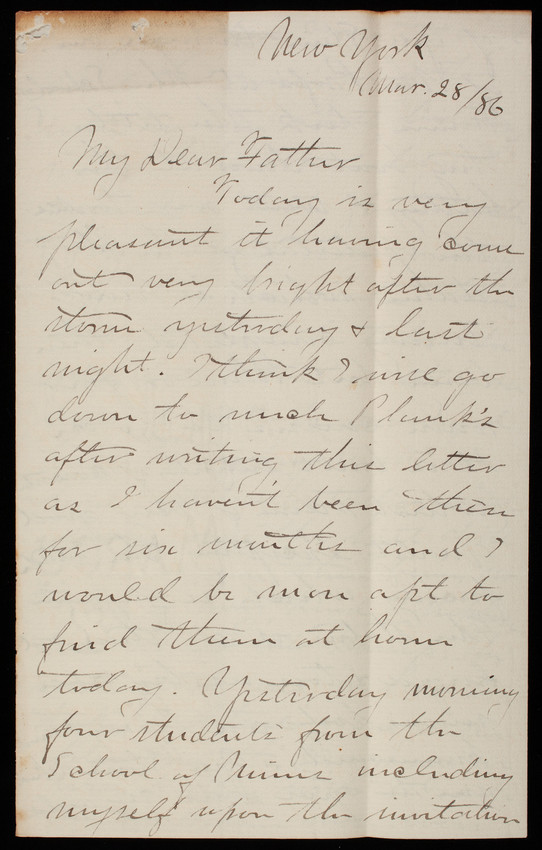 New York
Mar. 28/86
My Dear Father
Today is very
pleasant it having come
out very bright after the
storm yesterday & last
night. I think I will go
down to uncle Plunk's
after writing this letter
as I haven't been there
for six months and I
would be more apt to
find them at home
today. Yesterday morning
four students from the
School of Mines including
myself upon the invitation